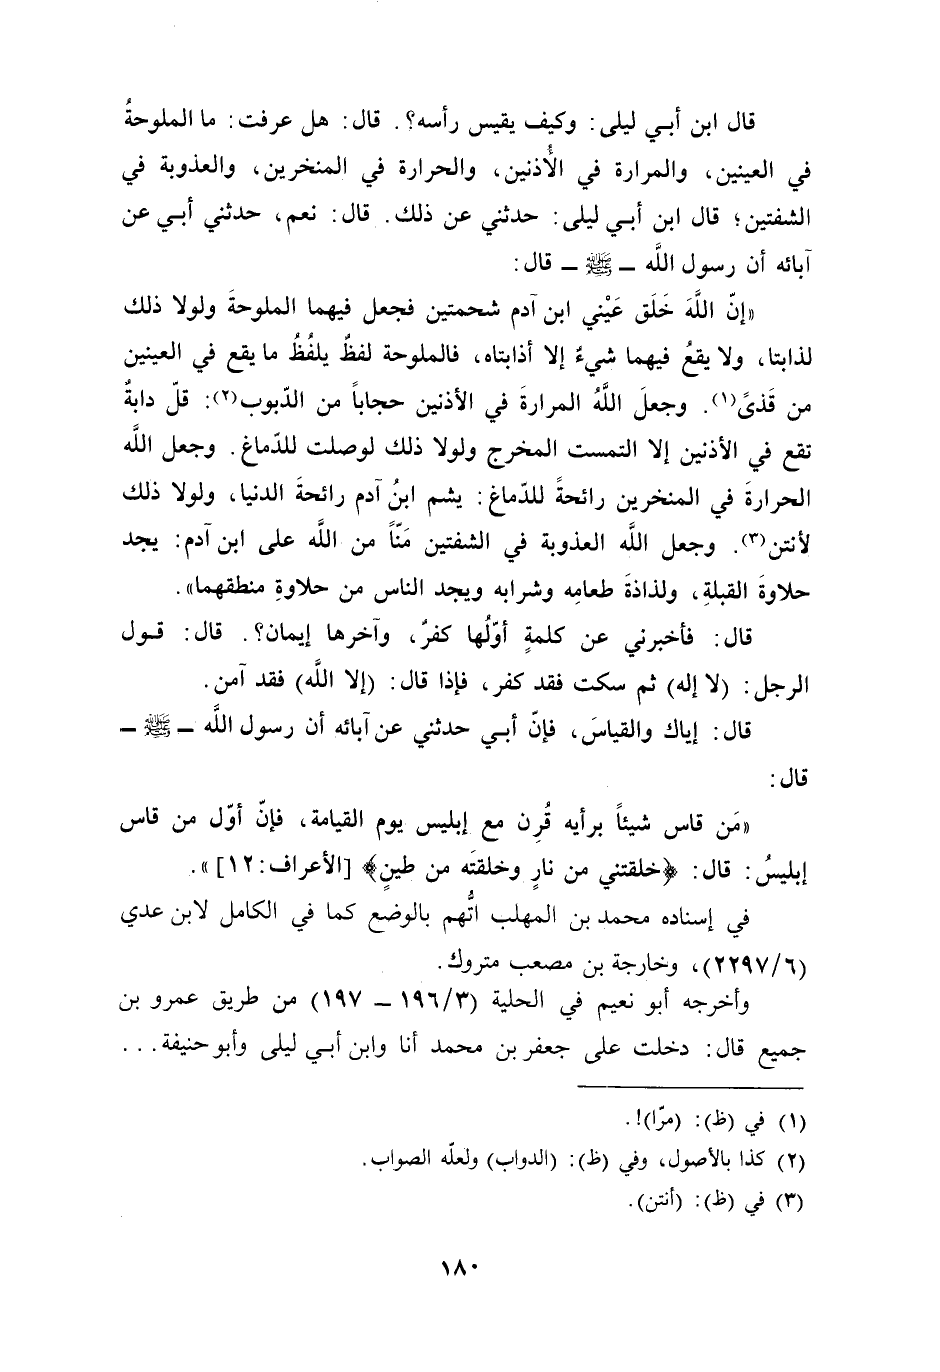 قال ابن أبي ليلى: وكيف يقيس رأسه؟. قال: هل عرفت: ما الملوحةُ
في العينين، والمرارة في الأُذنين، والحرارة في المنخرين، والعذوبة في
الشفتين؛ قال ابن أبي ليلى: حدثني عن ذلك. قال: نعم، حدثني أبي عن
آبائه أن رسول اللَّه ـ ﷺ ـ قال:
«إنّ اللَّهَ خَلَق عَيْني ابن آدم شحمتين فجعل فيهما الملوحةَ ولولا ذلك
لذابتا، ولا يقعُ فيهما شيءٌ إلا أذابتاه، فالملوحة لفظٌ يلفُظُ ما يقع في العينين
من قَذىً(١). وجعلَ اللَّهُ المرارةَ في الأذنين حجاباً من الدّبوب(٢): قلّ دابةٌ
تقع في الأذنين إلا التمست المخرج ولولا ذلك لوصلت للدّماغ. وجعل اللَّه
الحرارةَ في المنخرين رائحةً للدّماغ: يشم ابنُ آدم رائحةَ الدنيا، ولولا ذلك
لأنتن(٣). وجعل اللَّه العذوبة في الشفتين مَنّاً من اللَّه على ابن آدم: يجد
حلاوةَ القبلةِ، ولذاذةَ طعامِه وشرابه ويجد الناس من حلاوةِ منطقهما».
قال: فأخبرني عن كلمةٍ أوّلُها كفرٌ، وآخرها إيمان؟. قال: قول
الرجل: (لا إله) ثم سكت فقد كفر، فإذا قال: (إلا اللَّه) فقد آمن.
قال: إياك والقياسَ، فإنّ أبي حدثني عن آبائه أن رسول اللَّه ـ ﷺ ـ
قال:
«مَن قاس شيئاً برأيه قُرِن مع إبليس يوم القيامة، فإنّ أوّل من قاس
إبليسُ: قال: ﴿خلقتني من نارٍ وخلقتَه من طينٍ﴾ [الأعراف: ١٢]».
في إسناده محمد بن المهلب اتُّهم بالوضع كما في الكامل لابن عدي
(٢٢٩٧/٦)، وخارجة بن مصعب متروك.
وأخرجه أبو نعيم في الحلية (١٩٦/٣ ـ ١٩٧) من طريق عمرو بن
جميع قال: دخلت على جعفر بن محمد أنا وابن أبي ليلى وأبو حنيفة...
(١) في (ظ): (مرّا)!.
(٢) كذا بالأصول، وفي (ظ): (الدواب) ولعلّه الصواب.
(٣) في (ظ): (أنتن).
١٨٠